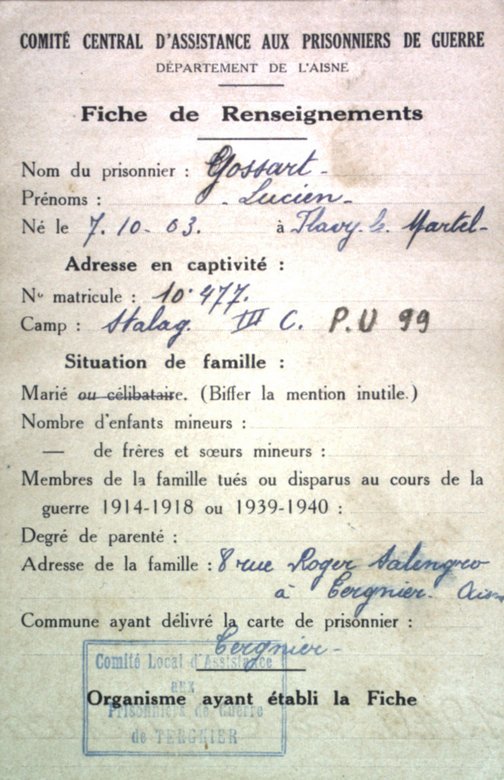 COMITÉ CENTRAL D'ASSISTANCE AUX PRISONNIERS DE GUERRE
DÉPARTEMENT DE L'AISNE
Fiche de Renseignements
Nom du prisonnier : Gossart -
Prénoms : - Lucien -
Né le 7. 10 - 03. à Flavy. le Martel -
Adresse en captivité :
No matricule : 10.477.
Camp : Stalag. III C. P.U 99
Situation de famille :
Marié ou célibataire. (Biffer la mention inutile.)
Nombre d'enfants mineurs :
— de frères et sœurs mineurs :
Membres de la famille tués ou disparus au cours de la
guerre 1914-1918 ou 1939-1940 :
Degré de parenté :
Adresse de la famille : 8 rue Roger Salengro
à Tergnier - Aisne
Commune ayant délivré la carte de prisonnier :
Tergnier -
Comité Local d'Assistance
aux
Organisme ayant établi la Fiche
Prisonniers de Guerre
de TERGNIER